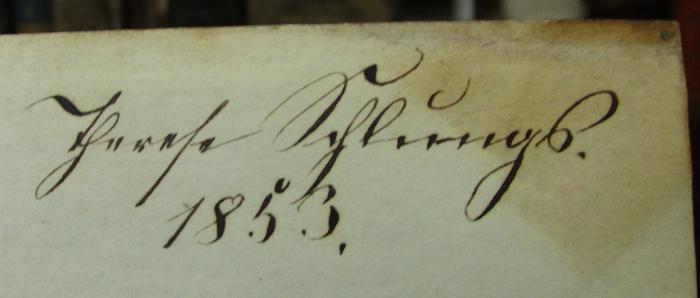 Therese Schlungs.
1853.